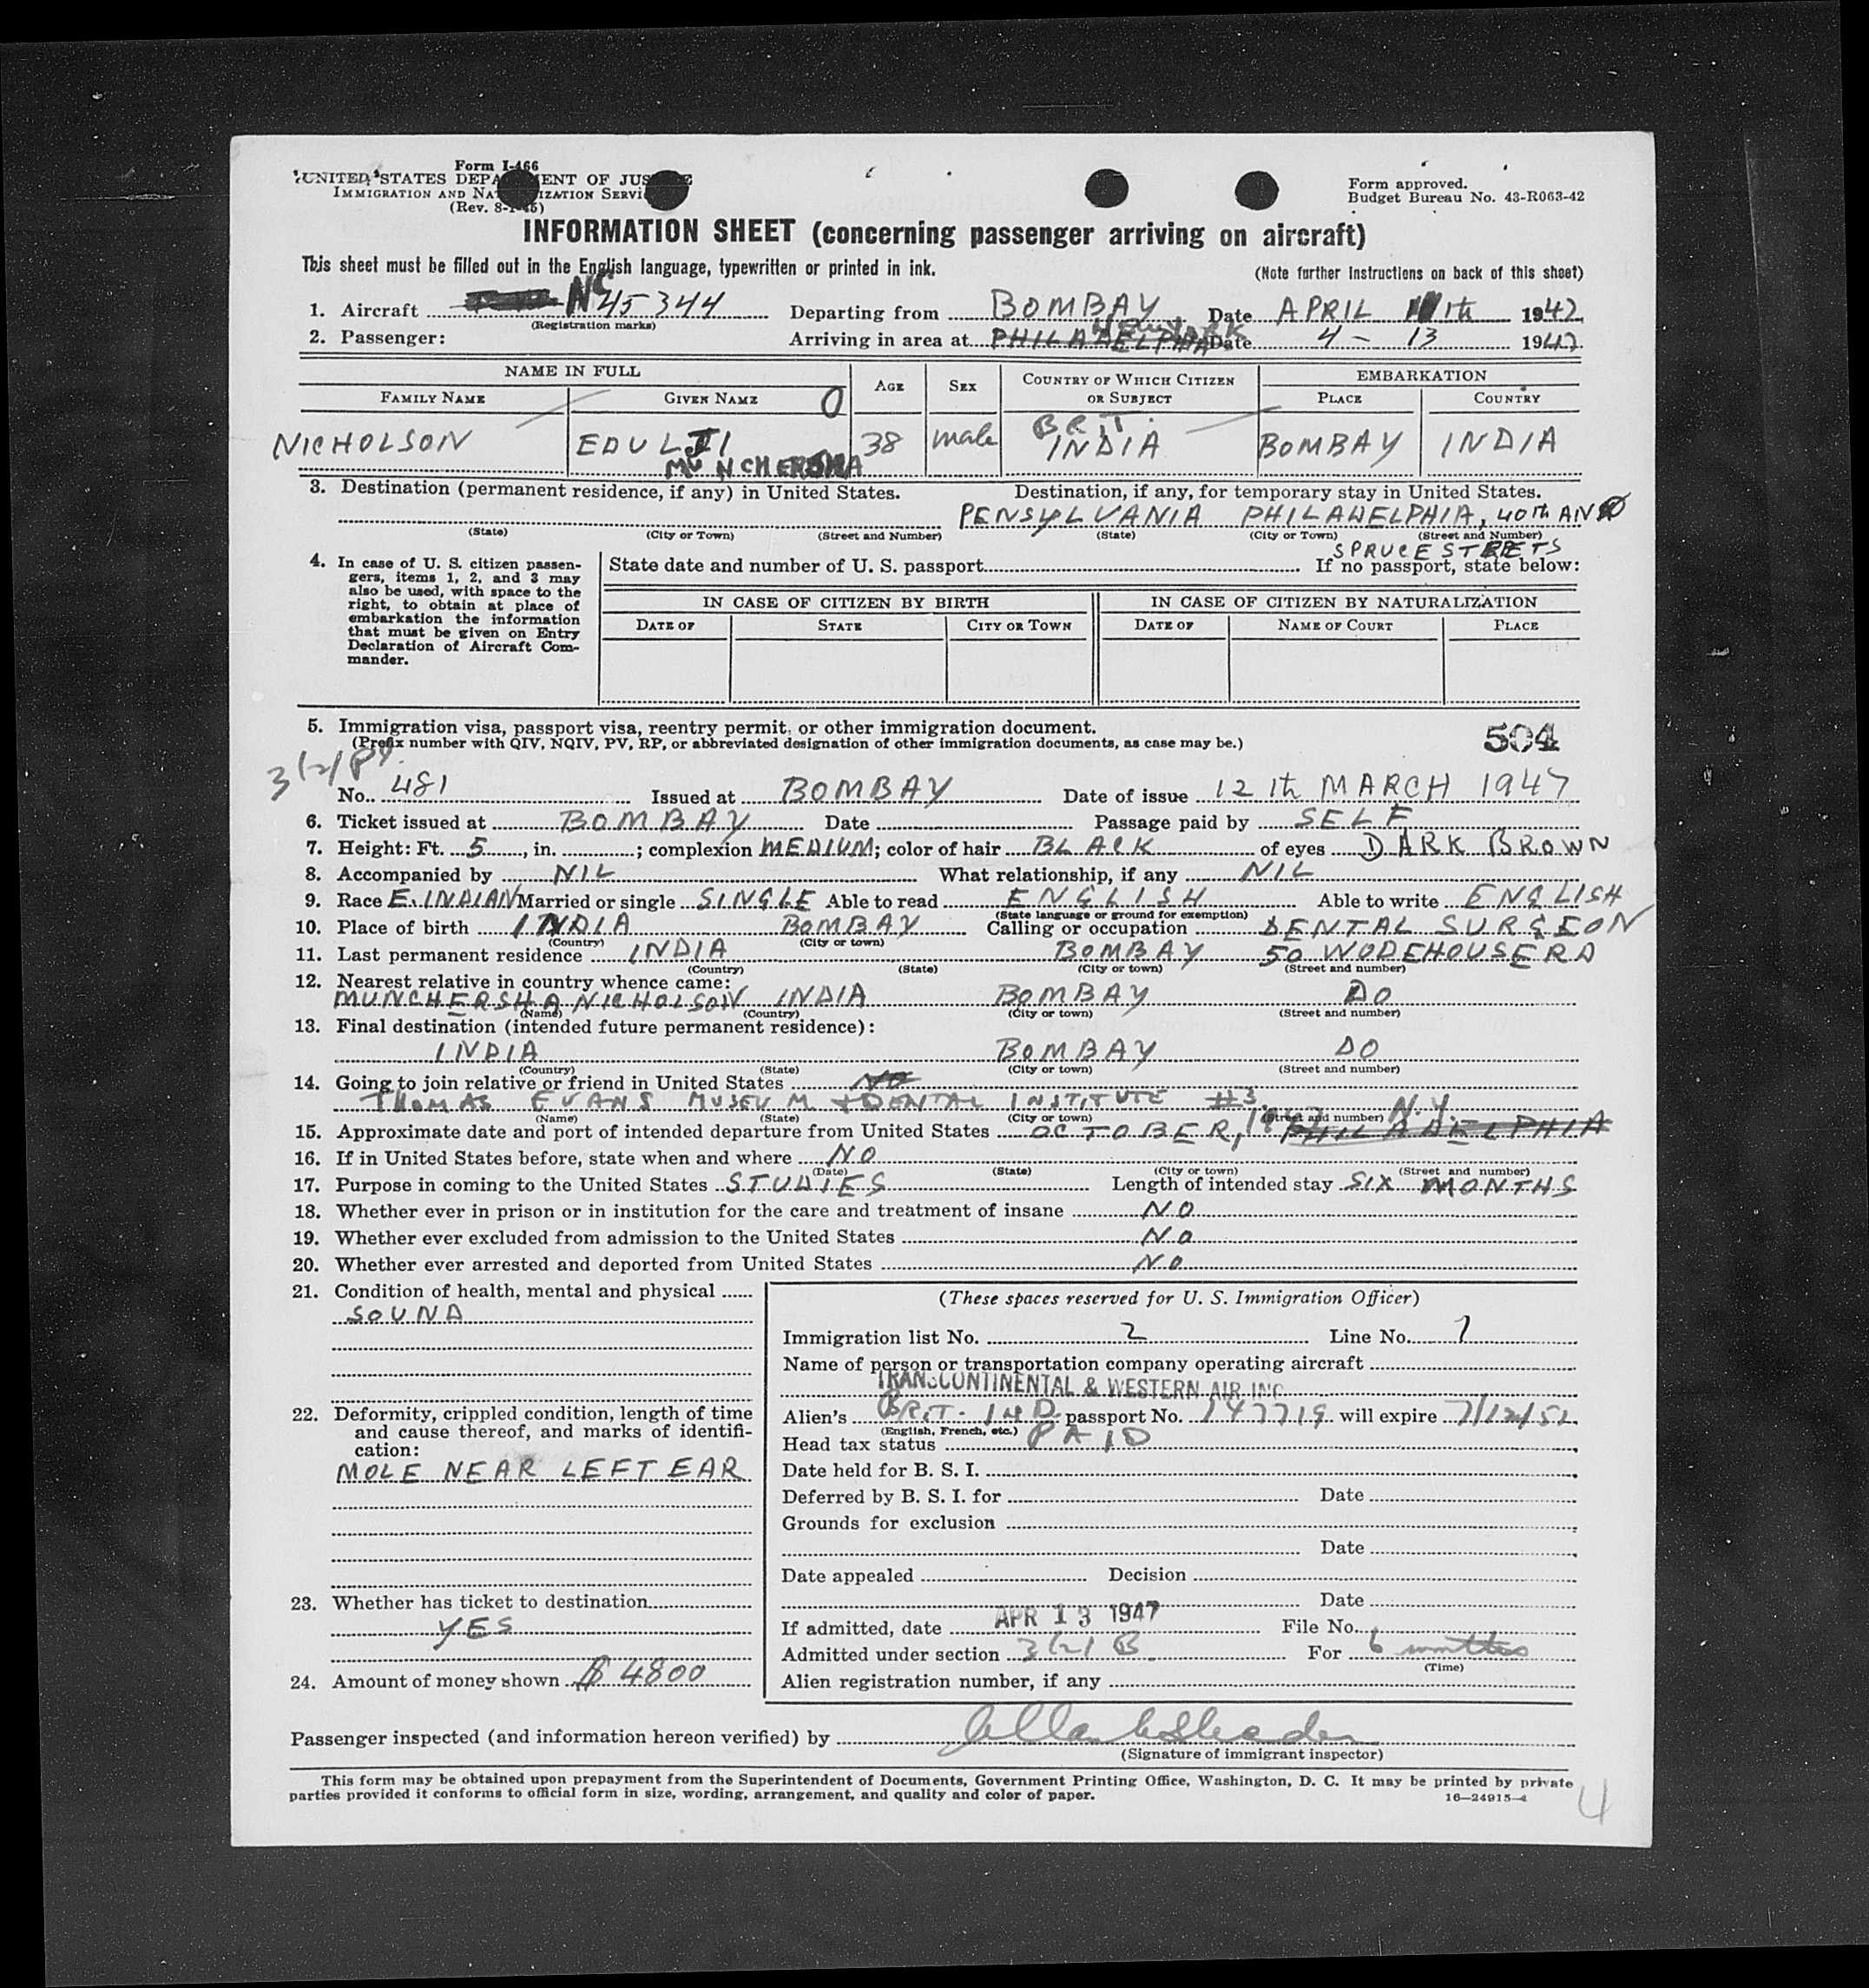 Form I-466
UNITED STATES DEPA ENT OF JUS E
IMMIGRATION AND NA IZATION SERVI
(Rev. 8-1-45)
Form approved.
Budget Bureau No. 43-R063-42
INFORMATION SHEET (concerning passenger arriving on aircraft)
This sheet must be filled out in the English language, typewritten or printed in ink. (Note further instructions on back of this sheet)
1. Aircraft NC 45344 Departing from BOMBAY Date APRIL 11th 1947
(Registration marks)
2. Passenger: Arriving in area at PHILADELPHIA NEW YORK Date 4 - 13 1947
NAME IN FULL AGE SEX COUNTRY OF WHICH CITIZEN OR SUBJECT EMBARKATION
FAMILY NAME GIVEN NAME PLACE COUNTRY
NICHOLSON EDULJI MUNCHERSHA 38 male BRIT. INDIA BOMBAY INDIA
3. Destination (permanent residence, if any) in United States. Destination, if any, for temporary stay in United States.
PENSYLVANIA PHILADELPHIA, 40th AND
(State) (City or Town) (Street and Number) (State) (City or Town) (Street and Number)
SPRUCE STREETS
4. In case of U. S. citizen passengers, items 1, 2, and 3 may also be used, with space to the right, to obtain at place of embarkation the information that must be given on Entry Declaration of Aircraft Commander.
State date and number of U. S. passport If no passport, state below:
IN CASE OF CITIZEN BY BIRTH IN CASE OF CITIZEN BY NATURALIZATION
DATE OF STATE CITY OR TOWN DATE OF NAME OF COURT PLACE
5. Immigration visa, passport visa, reentry permit, or other immigration document.
(Prefix number with QIV, NQIV, PV, RP, or abbreviated designation of other immigration documents, as case may be.) 504
3(2) PV.
No. 481 Issued at BOMBAY Date of issue 12th MARCH 1947
6. Ticket issued at BOMBAY Date Passage paid by SELF
7. Height: Ft. 5, in. ; complexion MEDIUM; color of hair BLACK of eyes DARK BROWN
8. Accompanied by NIL What relationship, if any NIL
9. Race E. INDIAN Married or single SINGLE Able to read ENGLISH Able to write ENGLISH
(State language or ground for exemption)
10. Place of birth INDIA BOMBAY Calling or occupation DENTAL SURGEON
(Country) (City or town)
11. Last permanent residence INDIA BOMBAY 50 WODEHOUSE RD
(Country) (State) (City or town) (Street and number)
12. Nearest relative in country whence came:
MUNCHERSHA NICHOLSON INDIA BOMBAY DO
(Name) (Country) (City or town) (Street and number)
13. Final destination (intended future permanent residence):
INDIA BOMBAY DO
(Country) (State) (City or town) (Street and number)
14. Going to join relative or friend in United States NO
THOMAS EVANS MUSEUM & DENTAL INSTITUTE #3
(Name) (State) (City or town) (Street and number) N.Y.
15. Approximate date and port of intended departure from United States OCTOBER, 1947 PHILADELPHIA
16. If in United States before, state when and where NO
(Date) (State) (City or town) (Street and number)
17. Purpose in coming to the United States STUDIES Length of intended stay SIX MONTHS
18. Whether ever in prison or in institution for the care and treatment of insane NO
19. Whether ever excluded from admission to the United States NO
20. Whether ever arrested and deported from United States NO
21. Condition of health, mental and physical
SOUND
22. Deformity, crippled condition, length of time and cause thereof, and marks of identification:
MOLE NEAR LEFT EAR
23. Whether has ticket to destination
YES
24. Amount of money shown $ 4800
(These spaces reserved for U. S. Immigration Officer)
Immigration list No. 2 Line No. 7
Name of person or transportation company operating aircraft
TRANSCONTINENTAL & WESTERN AIR INC
Alien's BRIT. IND. passport No. 147719 will expire 7/12/52
(English, French, etc.)
Head tax status PAID
Date held for B. S. I.
Deferred by B. S. I. for Date
Grounds for exclusion
Date
Date appealed Decision
Date
If admitted, date APR 13 1947 File No.
Admitted under section 3(2) B For 6 months
(Time)
Alien registration number, if any
Passenger inspected (and information hereon verified) by
(Signature of immigrant inspector)
This form may be obtained upon prepayment from the Superintendent of Documents, Government Printing Office, Washington, D. C. It may be printed by private
parties provided it conforms to official form in size, wording, arrangement, and quality and color of paper. 16—24915-4
4